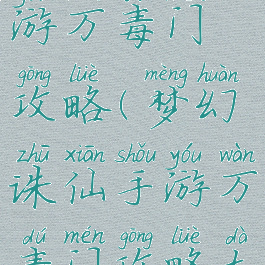 游万毒门
gōng lüè mèng huàn
攻略(梦幻
zhū xiān shǒu yóu wàn
诛仙手游万
dú mén gōng lüè dà
毒门攻略大